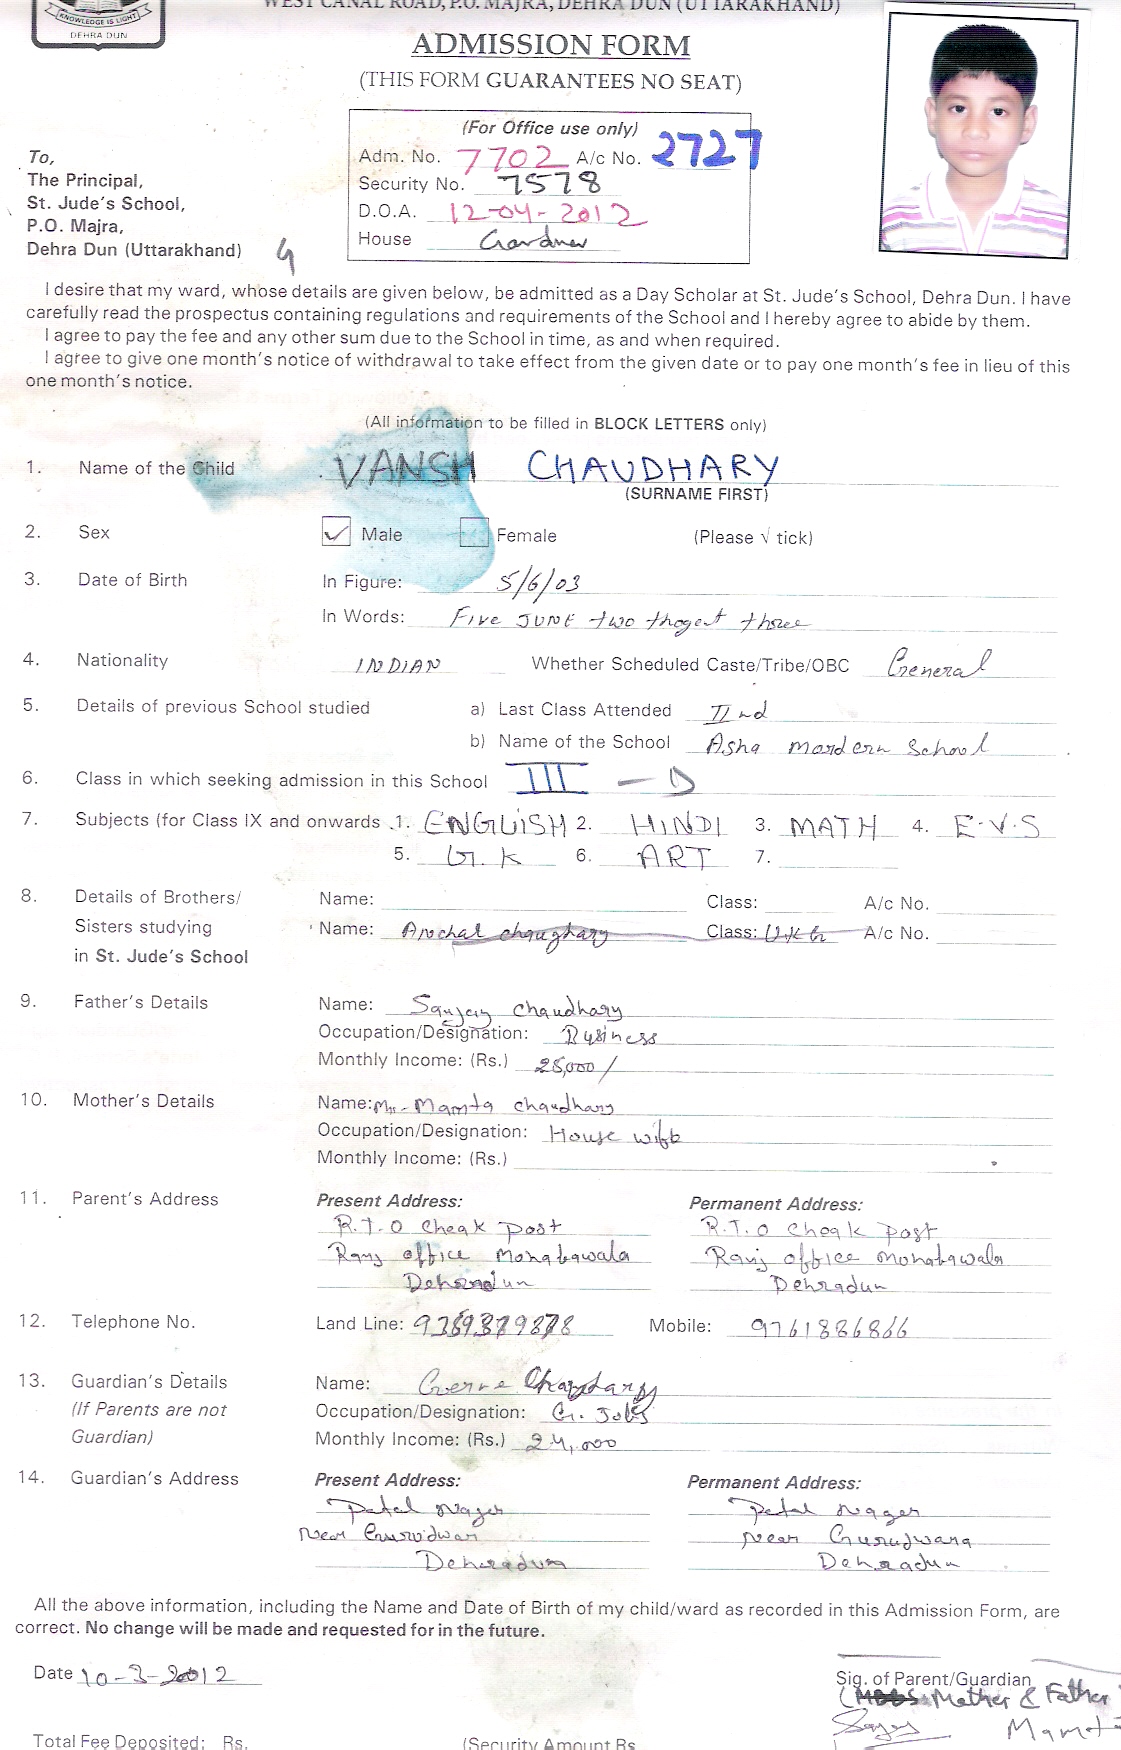 WEST CANAL ROAD, P.O. MAJRA, DEHRA DUN (UTTARAKHAND)
KNOWLEDGE IS LIGHT
DEHRA DUN
ADMISSION FORM
(THIS FORM GUARANTEES NO SEAT)
(For Office use only)
Adm. No. 7702 A/c No. 2727
Security No. 7578
D.O.A. 12-04-2012
House Gardner
To,
The Principal,
St. Jude's School,
P.O. Majra,
Dehra Dun (Uttarakhand)
I desire that my ward, whose details are given below, be admitted as a Day Scholar at St. Jude's School, Dehra Dun. I have
carefully read the prospectus containing regulations and requirements of the School and I hereby agree to abide by them.
I agree to pay the fee and any other sum due to the School in time, as and when required.
I agree to give one month's notice of withdrawal to take effect from the given date or to pay one month's fee in lieu of this
one month's notice.
(All information to be filled in BLOCK LETTERS only)
1. Name of the Child VANSH CHAUDHARY
(SURNAME FIRST)
2. Sex ✓ Male Female (Please √ tick)
3. Date of Birth In Figure: 5/6/03
In Words: Five JUNE two thogent three
4. Nationality INDIAN Whether Scheduled Caste/Tribe/OBC General
5. Details of previous School studied a) Last Class Attended IInd
b) Name of the School Asha mordern School
6. Class in which seeking admission in this School III - D
7. Subjects (for Class IX and onwards 1. ENGLISH 2. HINDI 3. MATH 4. E.V.S
5. G.K 6. ART 7.
8. Details of Brothers/ Name: Class: A/c No.
Sisters studying Name: Anchal Chaughary Class: U.K.G A/c No.
in St. Jude's School
9. Father's Details Name: Sanjay Chaudhary
Occupation/Designation: Busines
Monthly Income: (Rs.) 25,000/
10. Mother's Details Name: Mrs. Mamta Chaudhary
Occupation/Designation: House wife
Monthly Income: (Rs.)
11. Parent's Address Present Address: Permanent Address:
R.T.O Cheak post R.T.O Cheak post
Raaj office Mohabawala Raaj office Mohabawala
Dehradun Dehradun
12. Telephone No. Land Line: Mobile: 9761886866
13. Guardian's Details Name: Chaudhary
(If Parents are not Occupation/Designation: G. Job
Guardian) Monthly Income: (Rs.) 24,000
14. Guardian's Address Present Address: Permanent Address:
Patel Nager Patel Nager
Near Guruidwar Near Gurudwara
Dehradun Dehradun
All the above information, including the Name and Date of Birth of my child/ward as recorded in this Admission Form, are
correct. No change will be made and requested for in the future.
Date 10-3-2012 Sig. of Parent/Guardian
Mother & Father
Mamt
Total Fee Deposited: Rs. (Security Amount Rs